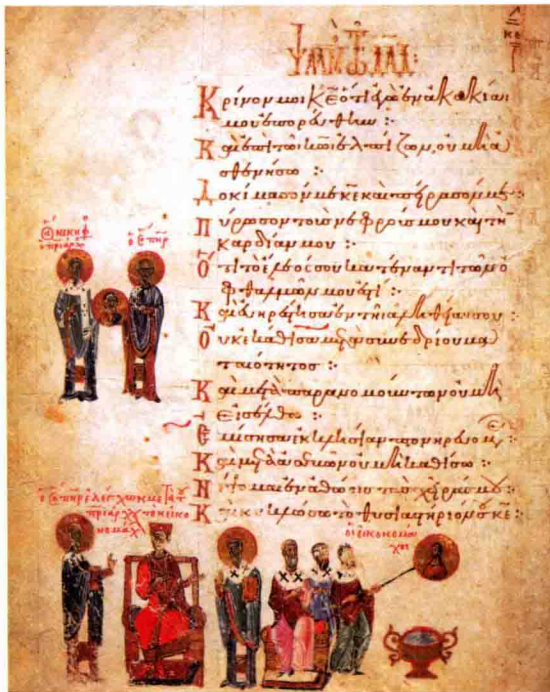 ΨΑΛΜ ΤΩ ΔΑΔ:
Κρίνον μοι κε ὅτι ἐγὼ ἐν ἀκακίαι
μου ἐπορεύθην :·
Καὶ ἐπὶ τῶι κωι ἐλπίζων, οὐ μὴ ἀ
σθενήσω :·
Δοκίμασόν με κε καὶ πείρασόν με:·
Πύρωσον τοὺς νεφρούς μου καὶ τὴ
καρδίαν μου :·
Ὅτι τὸ ἔλεός σου κατέναντι τῶν ὀ
φθαλμῶν μου ἐστί :·
Καὶ εὐηρέστησα ἐν τῆι ἀληθείαι σου
Οὐκ ἐκάθισα μετὰ συνεδρίου μα
ταιότητος :·
Καὶ μετὰ παρανομούντων οὐ μὴ
εἰσέλθω :·
Ἐμίσησα ἐκκλησίαν πονηρευομ
Καὶ μετὰ ἀσεβῶν οὐ μὴ καθίσω :·
Νίψομαι ἐν ἀθώοις τὰς χεῖράς μου
Καὶ κυκλώσω τὸ θυσιαστήριόν σου κε :·
ὁ νικηφ
ὁ πριάρχ
ὁ σ πηρ
ὁ σ πηρ ἐλέγχων μετὰ τ
πριάρχ τὸν εἰκο
νομάχ
οἱ εἰκονομα
χοι